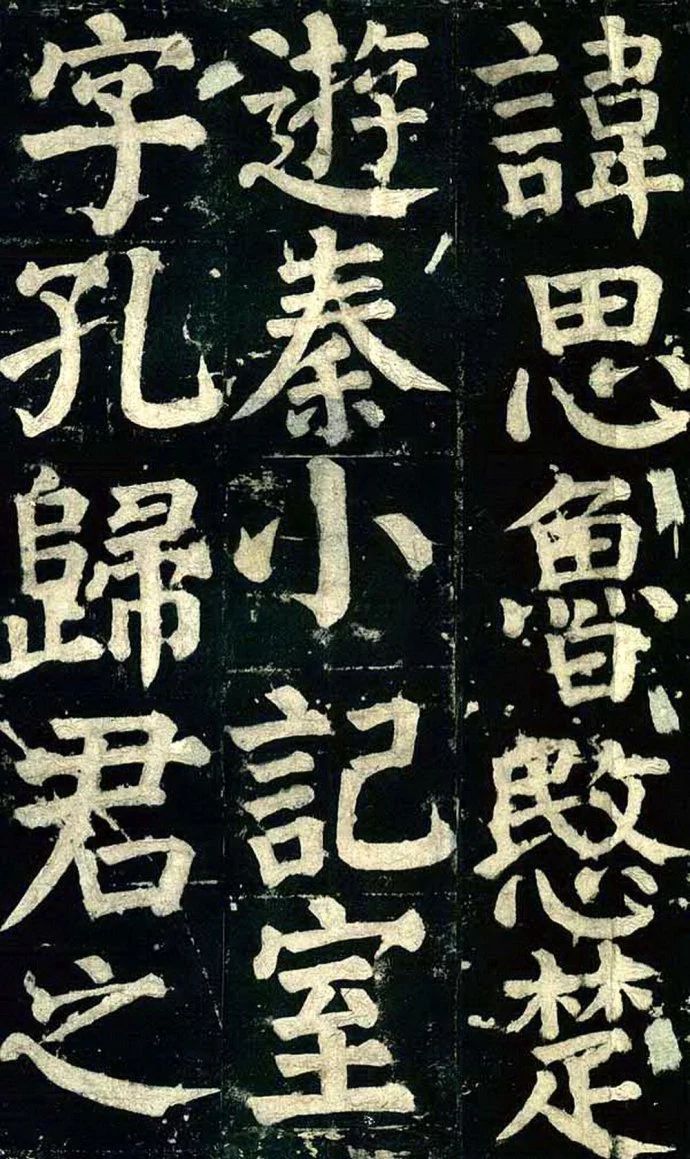 諱思魯愍楚
遊秦小記室
字孔歸君之